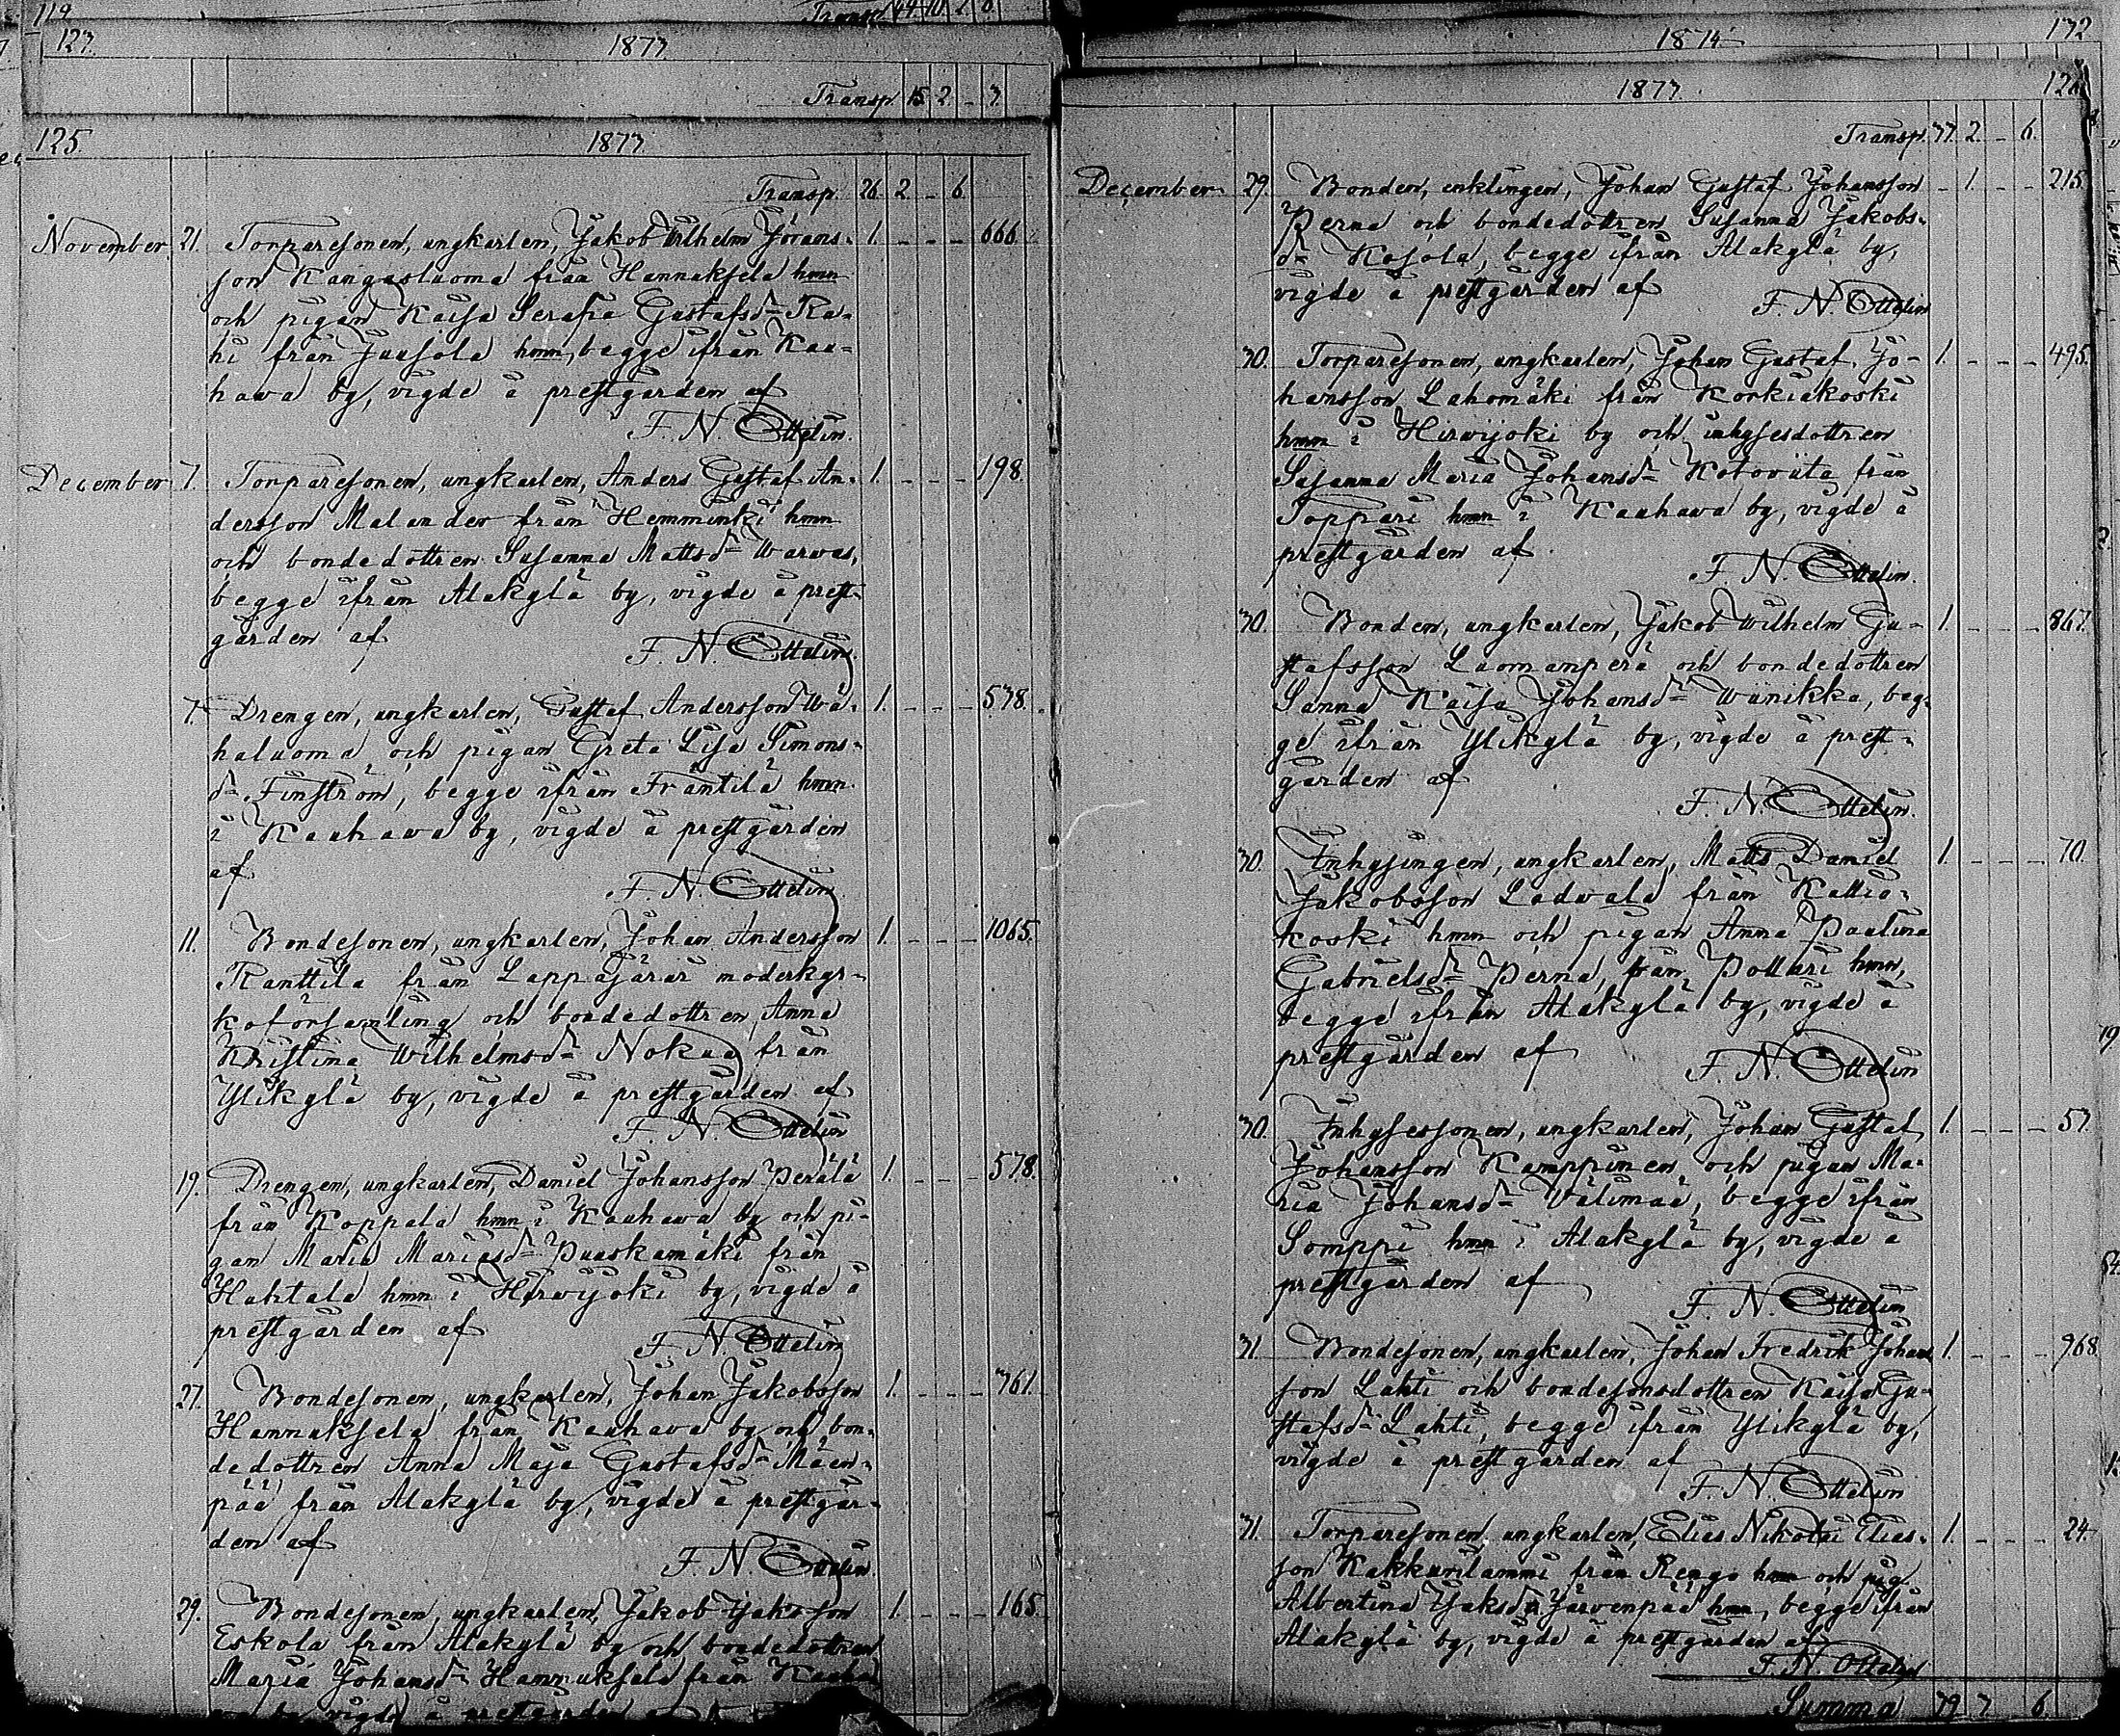 119. Transp. 44. 10. 2. 8.
123. 1873.
Transp. 15. 2. - 3.
125. 1873
Transp. 26. 2 - 6.
November 21. Torparesonen, ungkarlen, Jakob Wilhelm Jörans- 1. - - - 666.
son Kangasluoma från Hannuksela hmn
och pigan Kaisa Serafia Gustafsdr Ra-
hi från Juusola hmn, begge ifrån Kau-
hava by, vigde å prestgården af
F. N. Ottelin.
December 7. Torparesonen, ungkarlen, Anders Gustaf An- 1. - - - 198.
dersson Malander från Hemminki hmn
och bondedottren Susanna Mattsdr Warvas,
begge ifrån Alakylä by, vigde å prest-
gården af
F. N. Ottelin.
7. Drengen, ungkarlen, Gustaf Andersson Wä- 1. - - - 578.
haluoma och pigan Greta Lisa Simons-
dr Finström, begge ifrån Fräntilä hmn
i Kauhava by, vigde å prestgården
af
F. N. Ottelin.
11. Bondesonen, ungkarlen, Johan Andersson 1. - - - 1065.
Ranttila från Lappajärvi moderkyr-
koförsamling och bondedottren Anna
Kristina Wilhelmsdr Nokua från
Ylikylä by, vigde å prestgården af
F. N. Ottelin
19. Drengen, ungkarlen, Daniel Johansson Perälä 1. - - - 578.
från Koppala hmn i Kauhava by och pi-
gan Maria Mariasdr Puuskamäki från
Hahtala hmn i Hirvijoki by, vigde å
prestgården af
F. N. Ottelin
27. Bondesonen, ungkarlen, Johan Jakobsson 1. - - - 761.
Hannuksela från Kauhava by och bon-
dedottren Anna Maja Gustafsdr Mäen-
pää från Alakylä by, vigde å prestgår-
den af
F. N. Ottelin.
29. Bondesonen, ungkarlen, Jakob Jaksson 1. - - - 165.
Eskola från Alakylä by och bondedottren
Maria Johansdr Hannuksela från Kauha
vigde å prestgården
1874 132
1873. 12
Transp. 37. 2. - 6.
December 29. Bonden, enklingen, Johan Gustaf Johansson - 1. - - 215.
Perna och bondedottren Susanna Jakobs-
dr Kosola, begge ifrån Alakylä by,
vigde å prestgården af
F. N. Ottelin
30. Torparesonen, ungkarlen, Johan Gustaf Jo- 1. - - - 495.
hansson Lahomäki från Korkiakoski
hmn i Hirvijoki by och inhysesdottren
Susanna Maria Johansdr Kotoviita från
Toppari hmn i Kauhava by, vigde å
prestgården af
F. N. Ottelin.
30. Bonden, ungkarlen, Jakob Wilhelm Gu- 1. - - - 867.
stafsson Luomanperä och bondedottren
Sanna Kaisa Johansdr Wiinikka, beg-
ge ifrån Ylikylä by, vigde å prest-
gården af
F. N. Ottelin.
30. Inhysingen, ungkarlen, Matts Daniel 1. - - - 70.
Jakobsson Ladvala från Kallio-
koski hmn och pigan Anna Paulina
Gabrielsdr Perna, från Pollari hmn,
begge ifrån Alakylä by, vigde å
prestgården af
F. N. Ottelin
30. Inhysessonen, ungkarlen, Johan Gustaf 1. - - - 53.
Johansson Kamppinen och pigan Ma-
ria Johansdr Välimaa, begge ifrån
Somppi hmn i Alakylä by, vigde å
prestgården af
F. N. Ottelin
31. Bondesonen, ungkarlen, Johan Fredrik Johans 1. - - - 968.
son Lahti och bondesonsdottren Kaisa Gu-
stafsdr Lahti, begge ifrån Ylikylä by,
vigde å prestgården af
F. N. Ottelin
31. Torparesonen ungkarlen, Elias Nikolai Elias- 1. - - - 24.
son Kakkurilammi från Rengo hmn och pig
Albertina Jaksdr Järvenpää hmn, begge ifrån
Alakylä by, vigde å prestgården af
F. N. Ottelin
Summa 79 3 6.